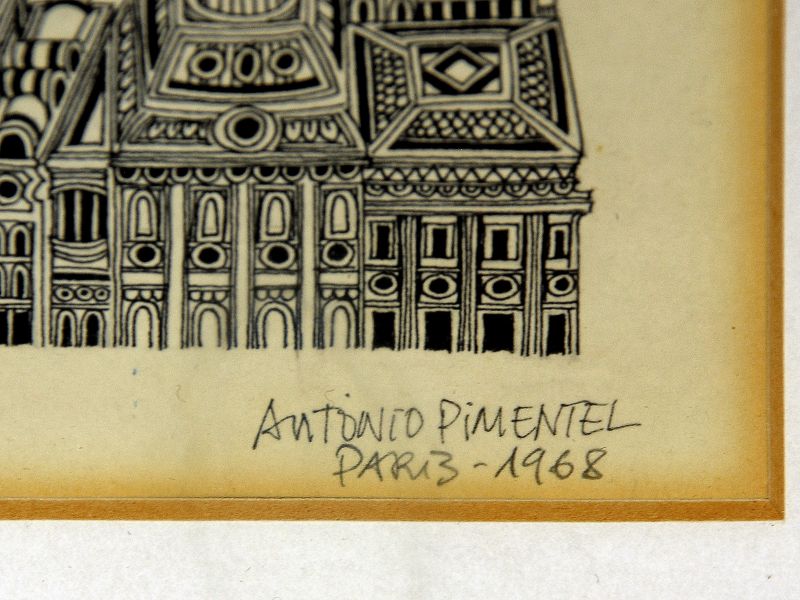 António Pimentel
Paris - 1968